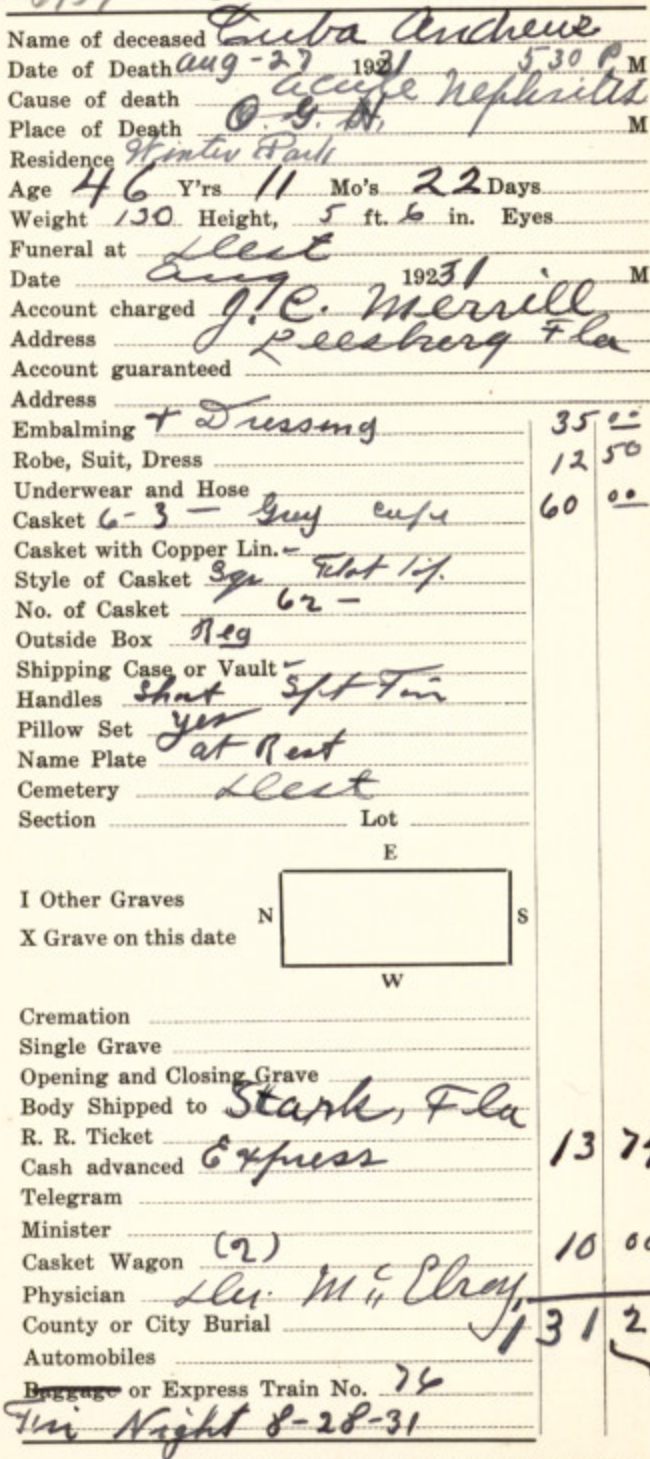 Name of deceased Cuba Andrews
Date of Death Aug-27 1931 5 30 P M
Cause of death acute Nephritis
Place of Death O. G. H. M
Residence Winter Park
Age 46 Y'rs 11 Mo's 22 Days
Weight 130 Height, 5 ft. 6 in. Eyes
Funeral at Dest
Date Aug 192 31 M
Account charged J. C. Merrill
Address Leesburg Fla
Account guaranteed
Address
Embalming + Dressing 35 00
Robe, Suit, Dress 12 50
Underwear and Hose
Casket 6-3 - Grey 60 00
Casket with Copper Lin. -
Style of Casket Sqr Flat
No. of Casket 62 -
Outside Box Reg
Shipping Case or Vault -
Handles Short
Pillow Set yes
Name Plate at Rest
Cemetery Dest
Section Lot
E
I Other Graves
N S
X Grave on this date
W
Cremation
Single Grave
Opening and Closing Grave
Body Shipped to Stark, Fla
R. R. Ticket
Cash advanced Express 13 7
Telegram
Minister
Casket Wagon (2) 10 00
Physician Dr. McElroy
County or City Burial 131 2
Automobiles
Baggage or Express Train No. 76
Fri Night 8-28-31